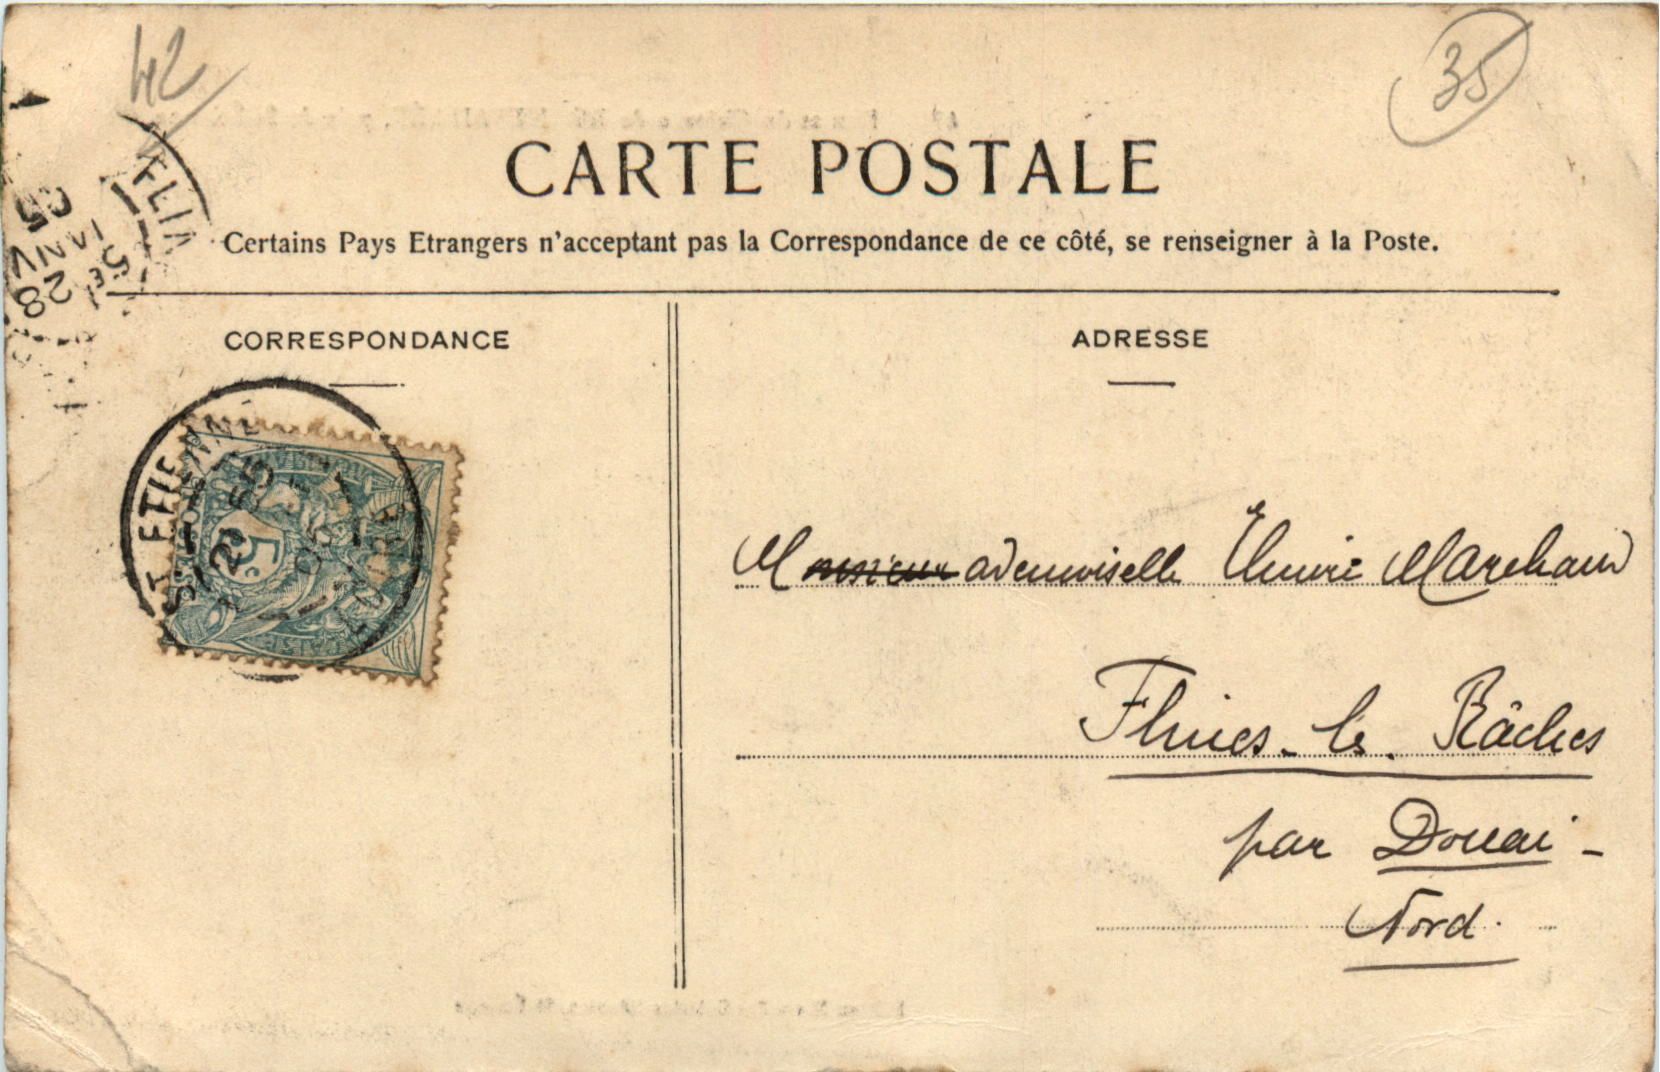 42
35
CARTE POSTALE
Certains Pays Etrangers n'acceptant pas la Correspondance de ce côté, se renseigner à la Poste.
FLIN
5e
28
JANV
05
CORRESPONDANCE
ADRESSE
ST ETIENNE
5e
LOIRE
5c
Mademoiselle Marchand
Flines-les-Râches
par Douai -
Nord.